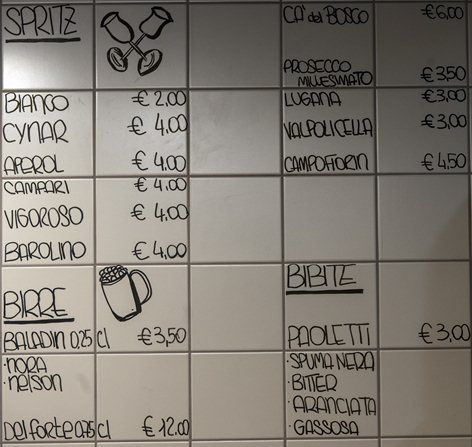 SPRITZ
BIANCO €2,00
CYNAR €4,00
APEROL €4,00
CAMPARI €4,00
VIGOROSO €4,00
BAROLINO €4,00
BIRRE
BALADIN 0,25 cl €3,50
·NORA
·nelson
Del Forte 0,75 cl €12,00
CA' del BOSCO €6,00
PROSECCO
MILLESIMATO €3,50
LUGANA €3,00
VALPOLICELLA €3,00
CAMPOFIORIN €4,50
BIBITE
PAOLETTI €3,00
·SPUMA NERA
·BITTER
·ARANCIATA
·GASSOSA